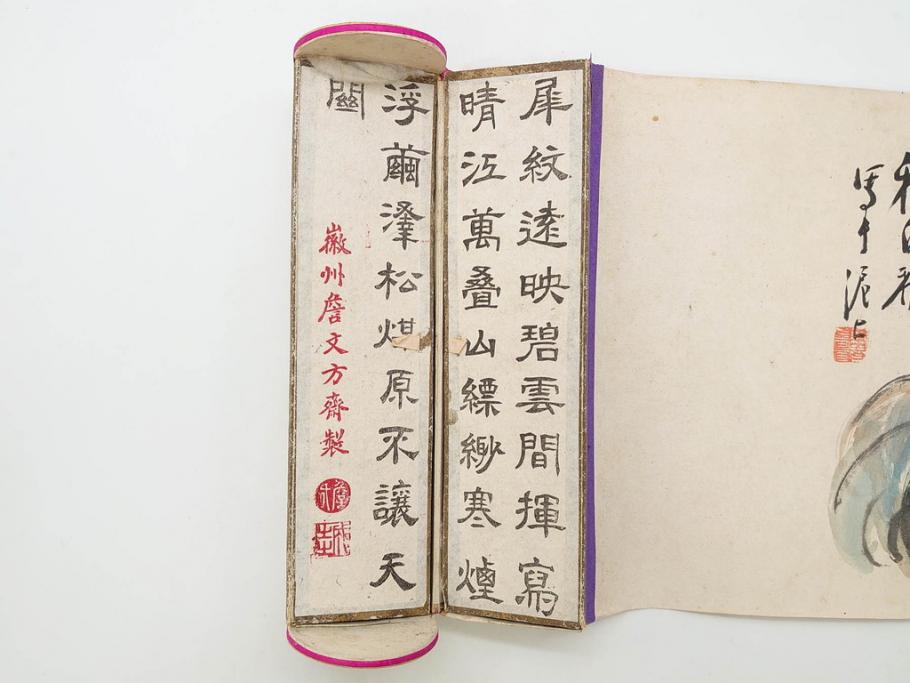 寫于滬上
犀紋遠映碧雲間揮寫
晴江萬叠山縹緲寒煙
浮繭澤松煤原不讓天
關
徽州詹文方齋製